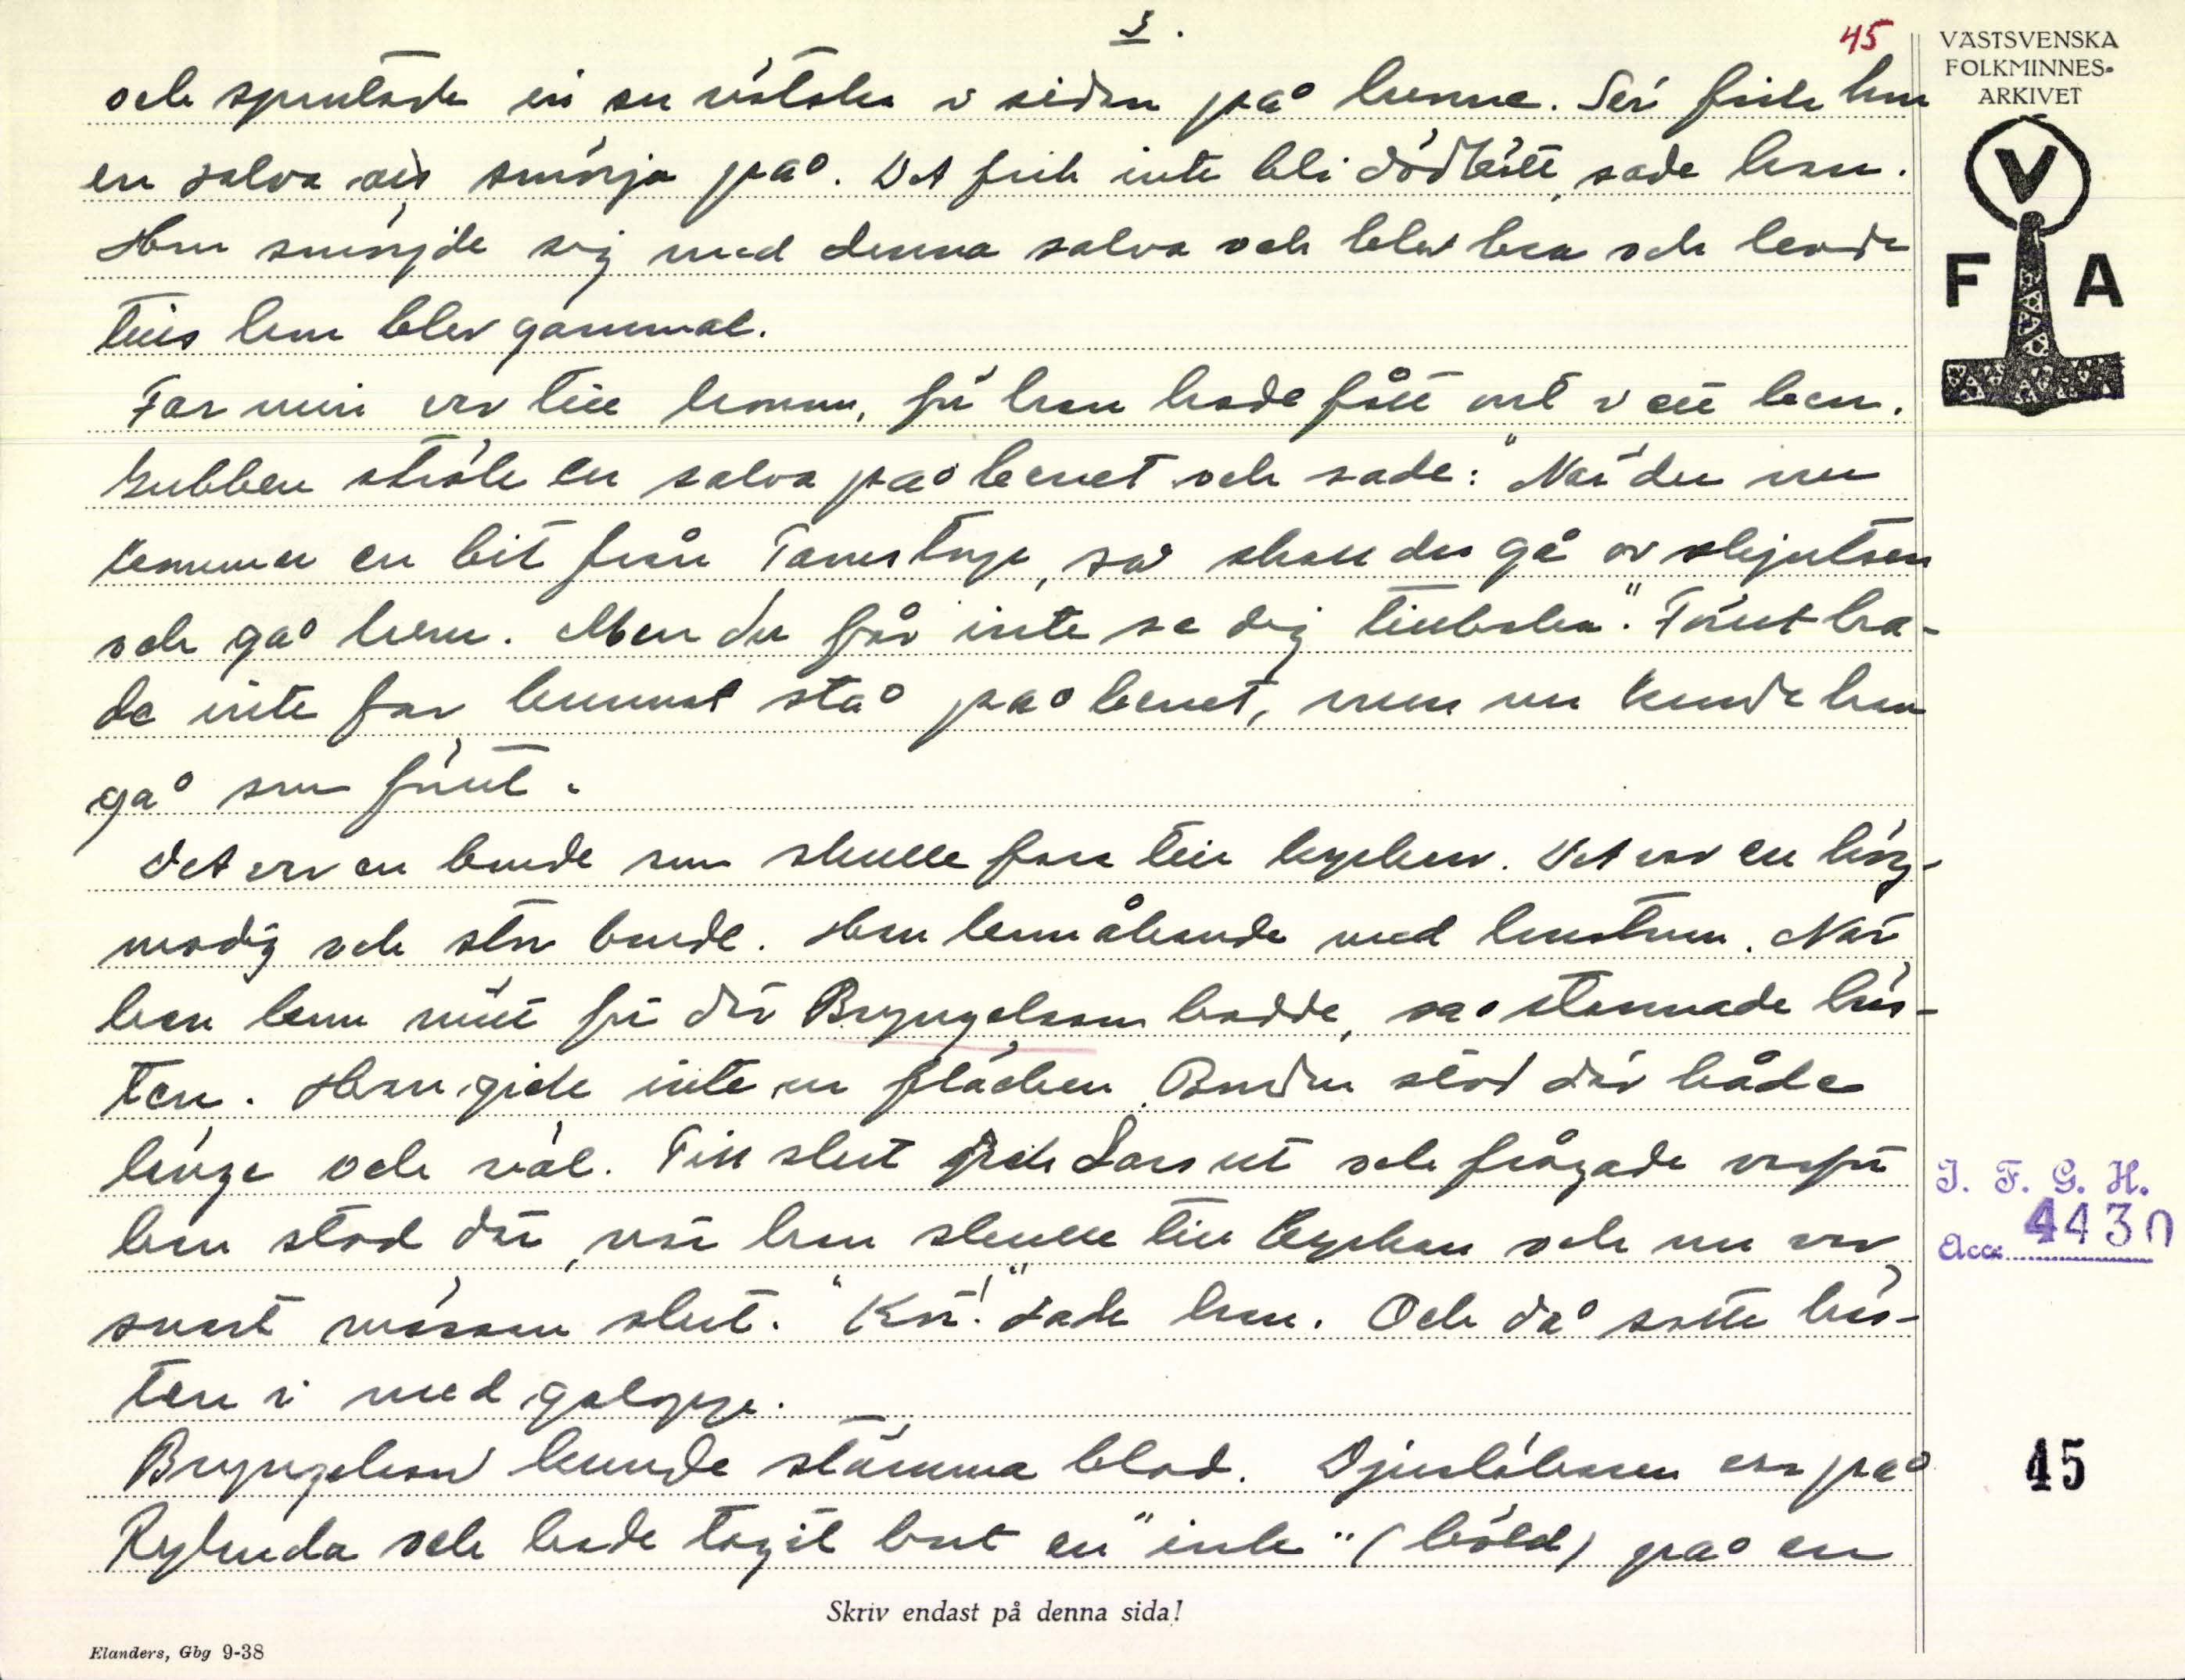 3.
45
och sprutade in en vätska i sidan på henne. Sen fick hon
en salva att smörja på. Det fick inte bli dödkött, sade han.
Hon smörjde sig med denna salva och blev bra och levde
tills hon blev gammal.
Far min var till honom, för han hade fått ont i ett ben.
Gubben strök en salva på benet och sade: "När du nu
kommer en bit från Tanestuga, så skall du gå av skjutsen
och gå hem. Men du får inte se dig tillbaka". Förut ha-
de inte far kunnat stå på benet, men nu kunde han
gå som förut.
Det var en bonde som skulle fara till kyrkan. Det var en hög-
modig och stor bonde. Han kom åkande med hustrun. När
han kom mitt för där Bryngelsson bodde, så stannade häs-
ten. Han gick inte ur fläcken. Bonden stod där både
länge och väl. Till slut gick Lars ut och frågade varför
han stod där, när han skulle till kyrkan och nu var
snart mässan slut. "Kör!" sade han. Och då satte häs-
ten i med galopp.
Bryngelsson kunde stämma blod. Djurläkaren var på
Rylanda och hade tagit bort en "ink" (böld) på en
Skriv endast på denna sida!
Elanders, Gbg 9-38
VÄSTSVENSKA
FOLKMINNES-
ARKIVET
V
F A
I. F. G. H.
Acc. 4430
45